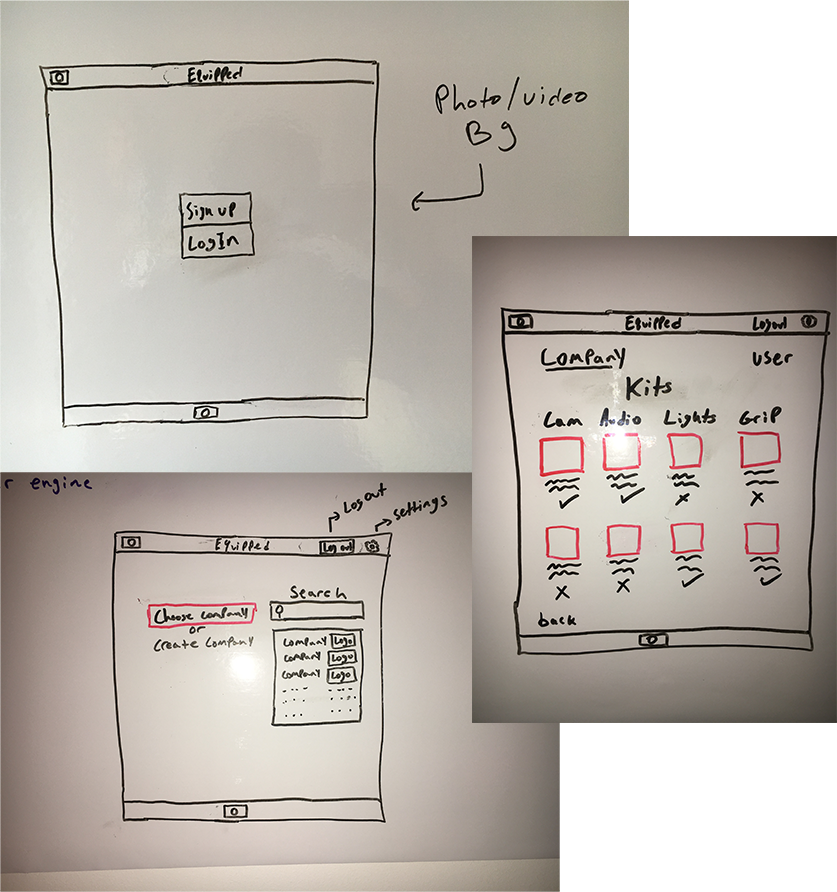 Equipped
Photo/video
Bg
Sign up
Log In
Equipped
Logout
Company
user
Kits
Cam
Audio
Lights
Grip
back
r engine
Logout
settings
Equipped
Log out
Search
Choose company
or
Create company
company
Logo
company
Logo
company
Logo